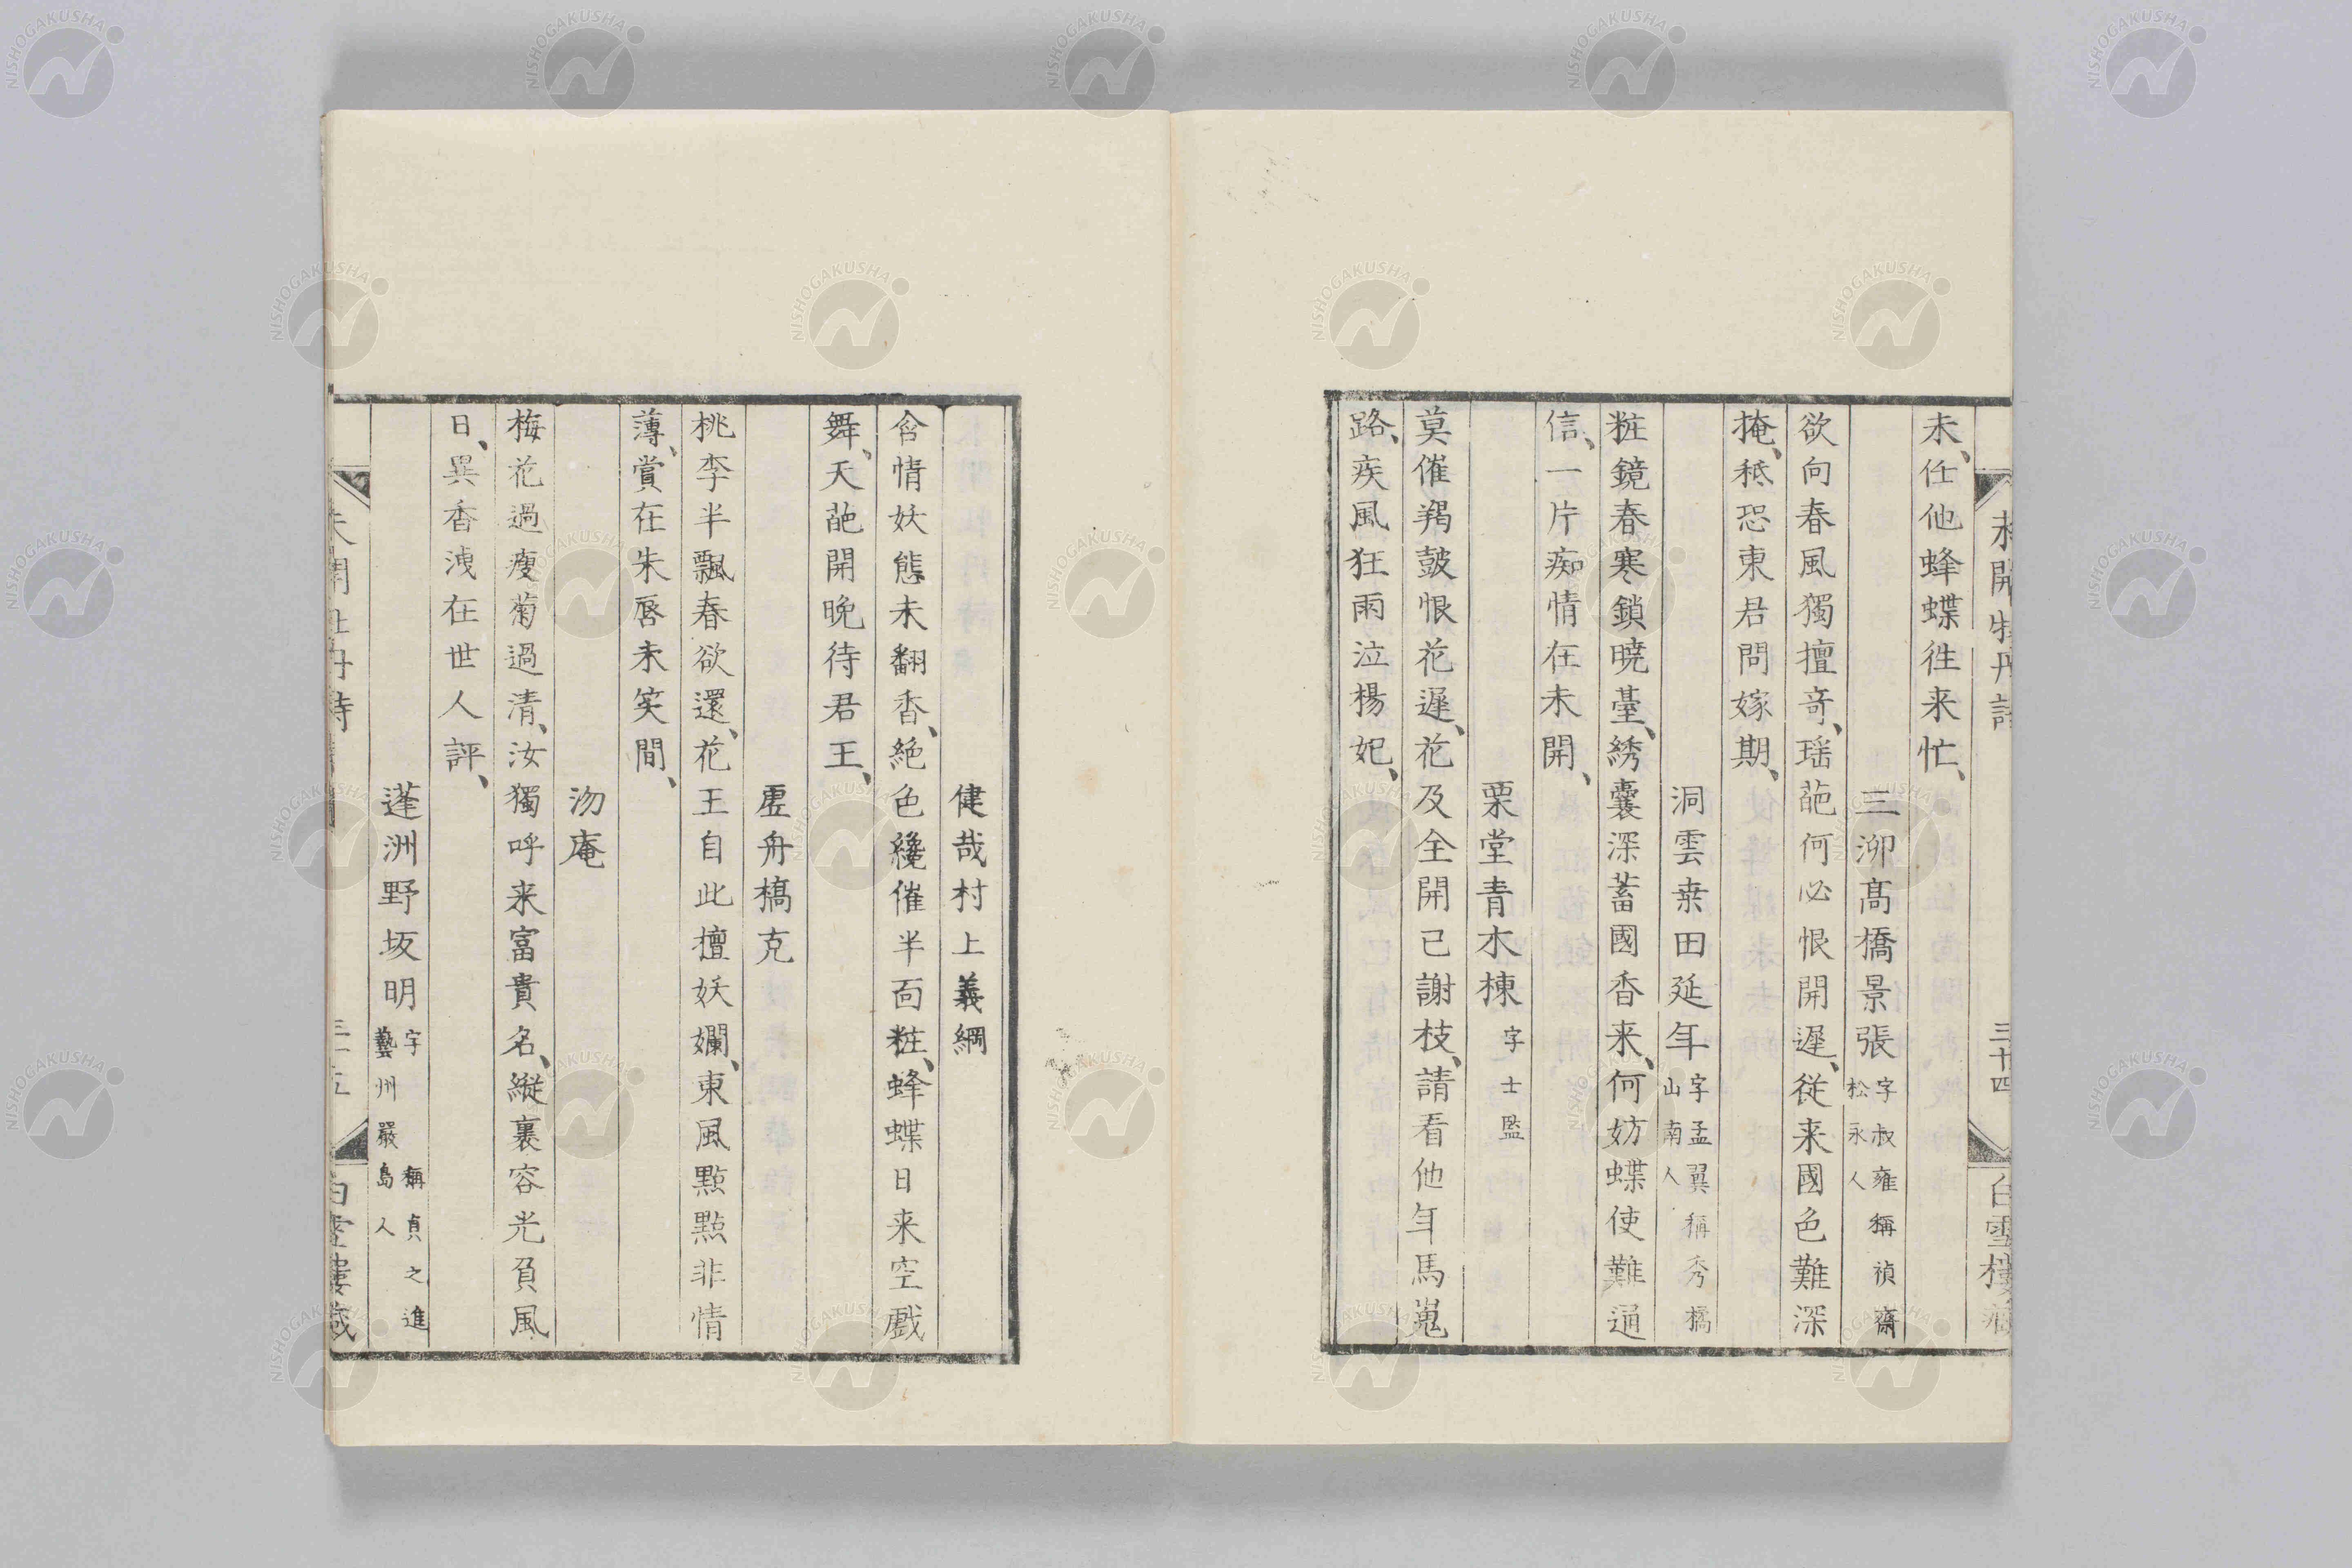 未開牡丹詩
三十四
白雪樓藏
未、任他蜂蝶往来忙、
三泖髙橋景張 字叔雍稱禎齋 松永人
欲向春風獨擅奇、瑶葩何必恨開遲、従来國色難深
掩、秪恐東君問嫁期、
洞雲桒田延年 字孟翼稱秀橘 山南人
粧鏡春寒鎖曉臺、綉囊深蓄國香来、何妨蝶使難通
信、一片痴情在未開、
栗堂青木棟 字士監
莫催羯鼓恨花遲、花及全開已謝枝、請看他年馬嵬
路、疾風狂雨泣楊妃、
健哉村上義綱
含情妖態未翻香、絶色纔催半面粧、蜂蝶日来空戲
舞、天葩開晚待君王、
虛舟槗克
桃李半飄春欲還、花王自此擅妖斕、東風點點非情
薄、賞在朱唇未笑間、
沕庵
梅花過瘦菊過清、汝獨呼来富貴名、縱裏容光負風
日、異香洩在世人評、
蓬洲野坂明 字 稱貞之進 藝州嚴島人
未開牡丹詩
三十五
白雪樓藏